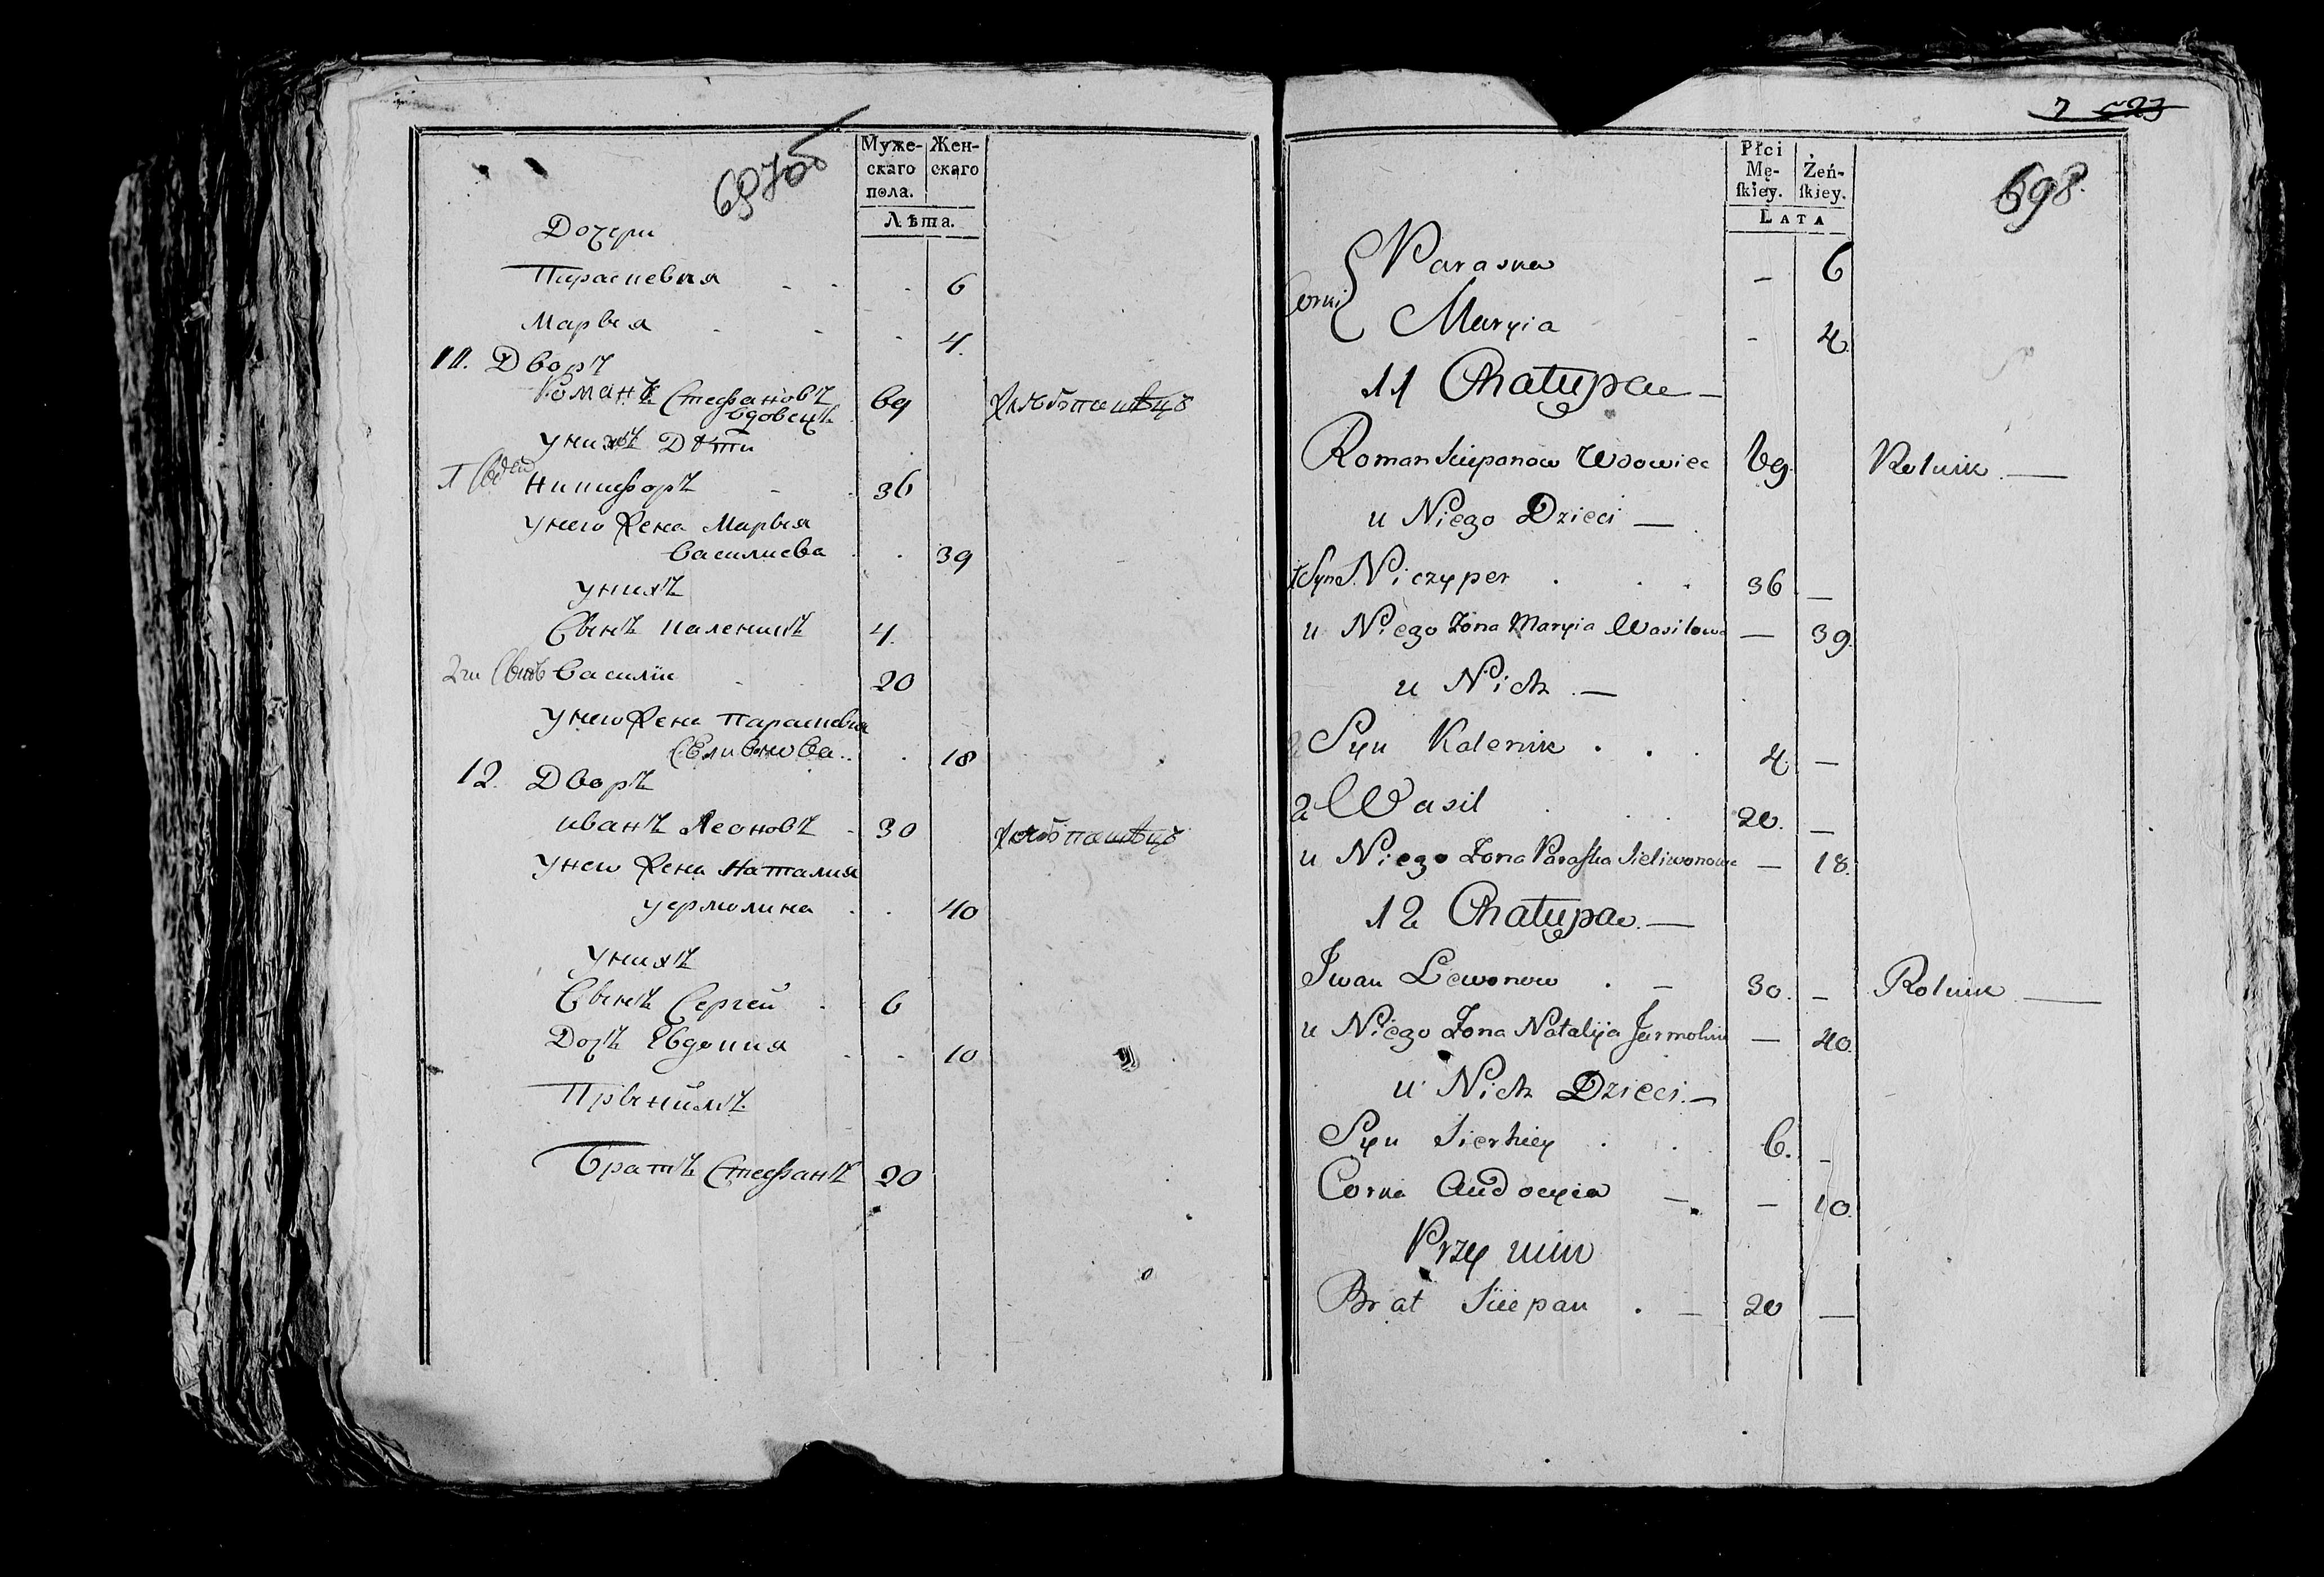 697об
Муже-
скаго
пола.
Жен-
скаго
Лѣта.
Дочери
Параскевия 6
Марья 4.
11. Дворъ
Романъ Стефановъ
вдовецъ 69 Хлѣбопашецъ
у нихъ Дѣти
Никифоръ 36
у него жена Марья
Василиева 39
у нихъ
Сынъ Каленикъ 4.
2й Сынъ Василiи 20
у него жена Параскевия
Селивонова 18
12. Дворъ
Иванъ Леоновъ 30 Хлѣбопашецъ
у него жена Наталия
Уермолина 40
у нихъ
Сынъ Сергей 6
Дочь Евдокия 10
При немъ
Братъ Стефанъ 20
7 523
698.
Płci
Mę-
ſkiey.
Żeń-
ſkiey.
Lata
Corki Paraska - 6
Maryia - 4.
11 Chatupa
Roman Sciepanow Wdowiec 69. Rolnik
u Niego Dzieci
1 Syn Niczyper 36 —
u Niego Zona Maryia Wasilowa — 39.
u Nich
Syn Kalenik 4. —
2 Wasil 20. —
u Niego Zona Paraska Sieliwonowa — 18.
12 Chatupa
Iwan Lewonow 30. — Rolnik
u Niego Zona Natalija Jarmolin — 40.
u Nich Dzieci
Syn Sierhiey 6. -
Corka Audocyia — 10.
Przy nim
Brat Sciepan 20 —